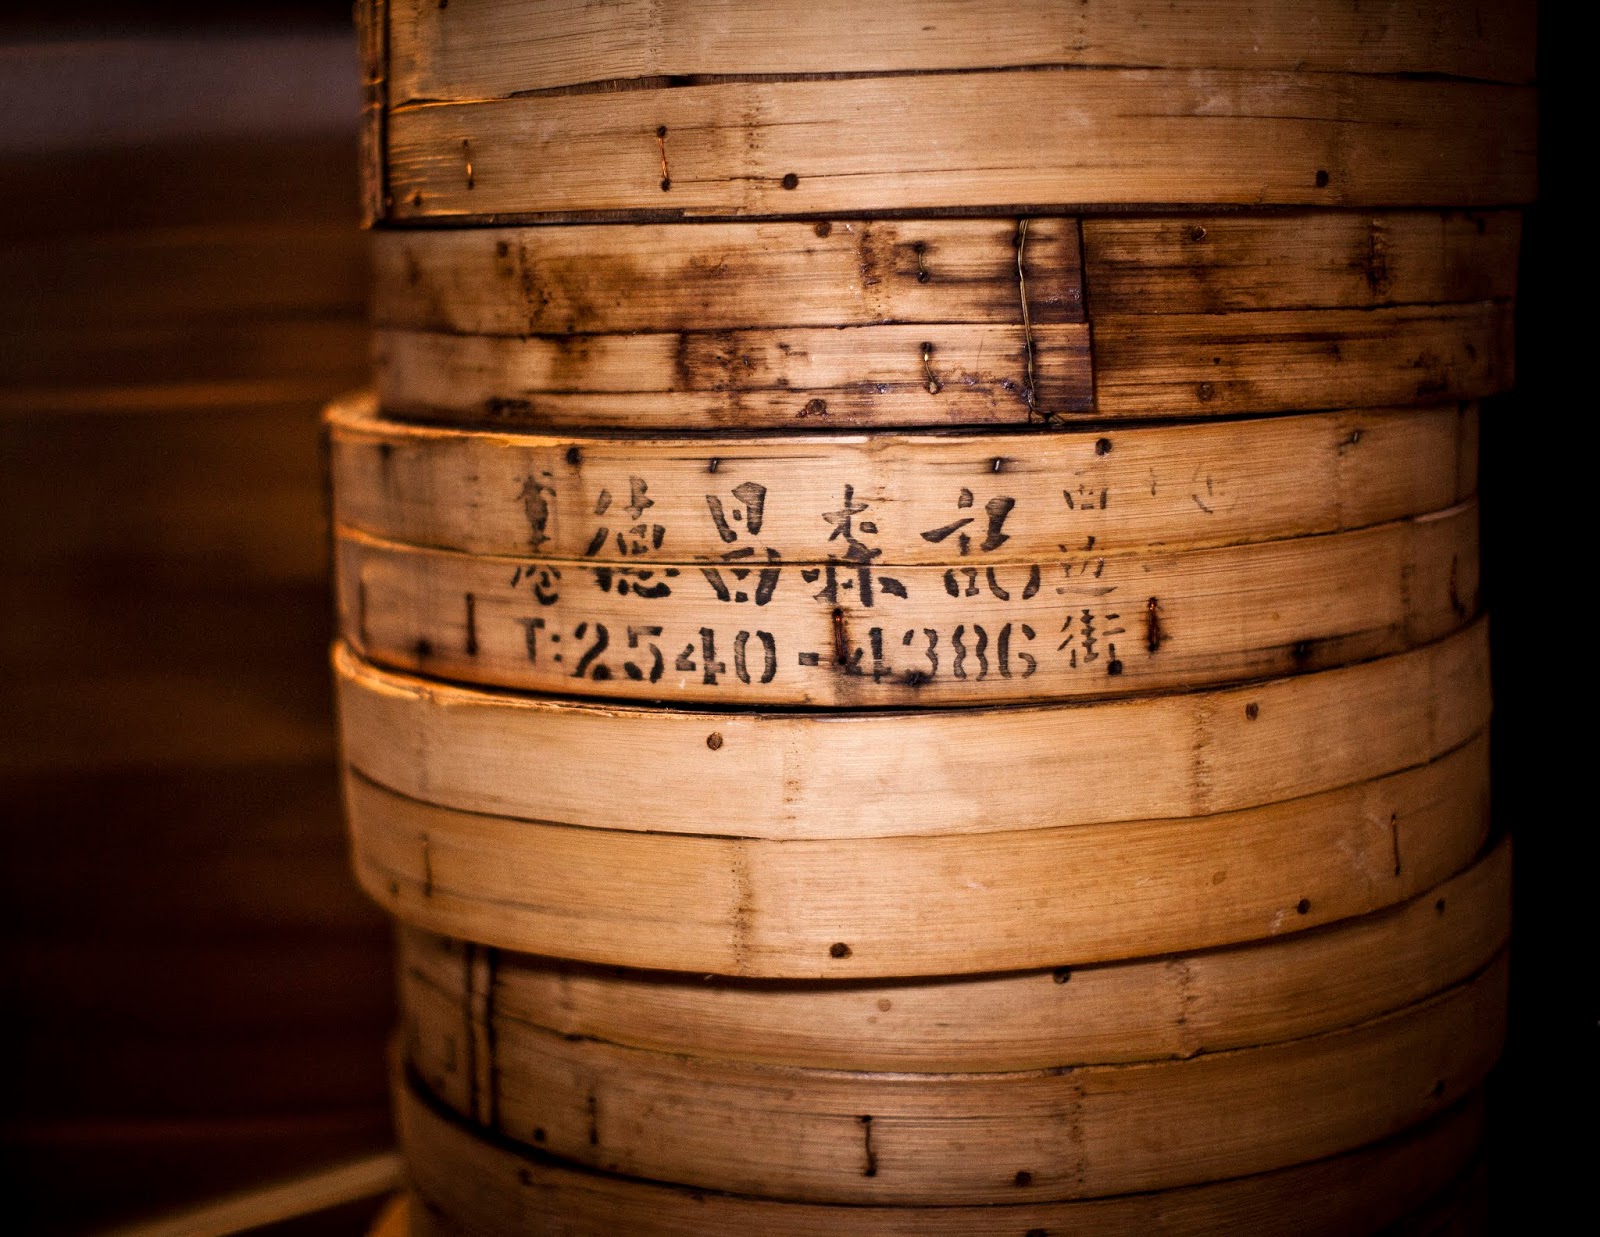 德昌森記
T:2540-4386
西边街